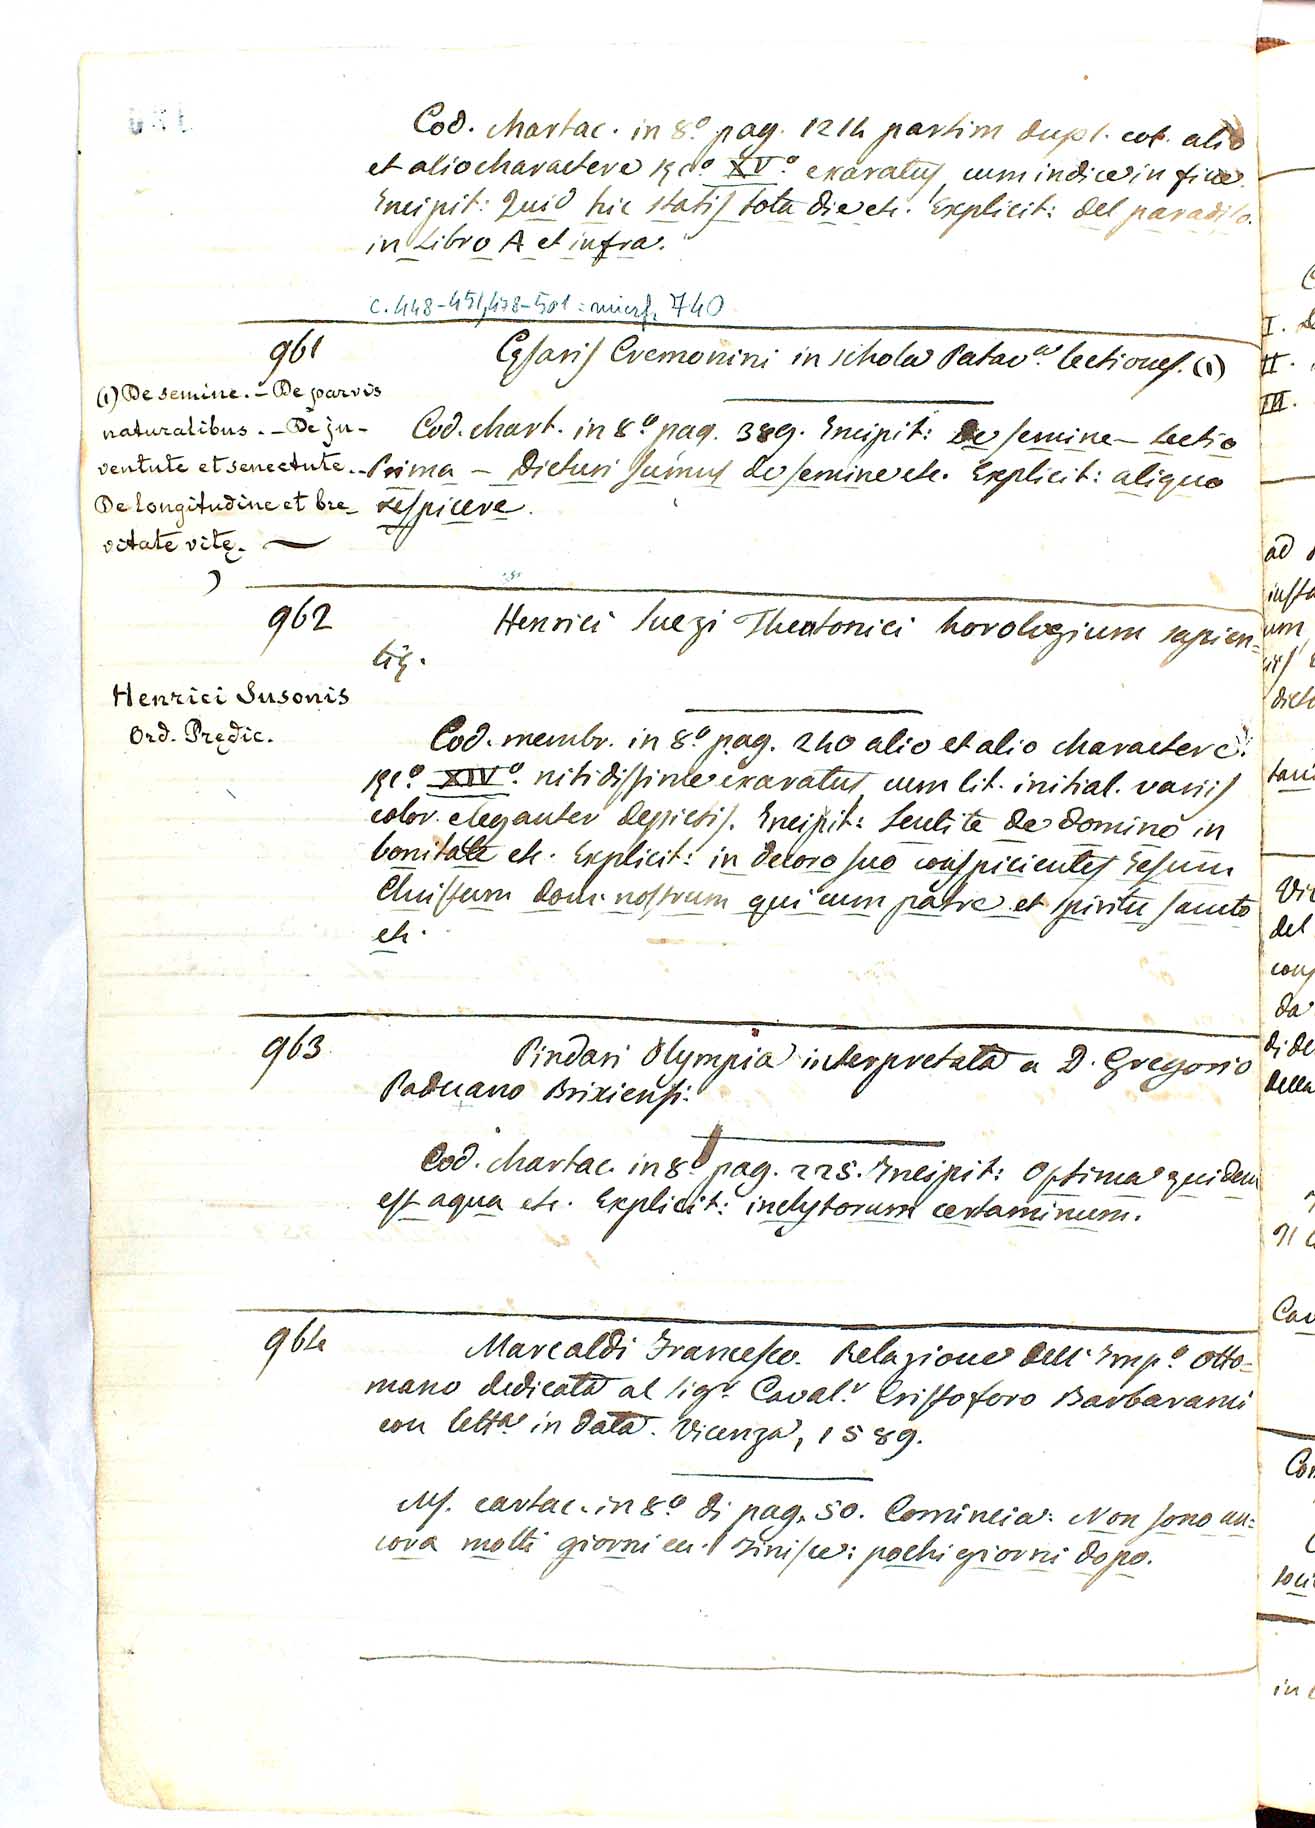 Cod. chartac. in 8.º pag. 1214 partim dupl. col. alio
et alio charactere sec.º XV.º exaratus, cum indice in fine.
Incipit: Quid hic statis tota die etc. Explicit: del paradiso.
in Libro A et infra.
c. 448-451, 478-501 = microf. 740
961
Cęsaris Cremonini in schola Patav.ª lectiones. (1)
(1) De semine. – De parvis
naturalibus. – De ju-
ventute et senectute. –
De longitudine et bre-
vitate vitę.
Cod. chart. in 8.º pag. 389. Incipit: De semine – Lectio
Prima – Dicturi sumus de semine etc. Explicit: aliquo
respicere.
962
Henrici Suezi Theotonici horologium sapien=
tię.
Henrici Susonis
Ord. Prędic.
Cod. membr. in 8.º pag. 240 alio et alio charactere
sec.º XIV.º nitidissime exaratus, cum lit. initial. variis
color. eleganter depictis. Incipit: Sentite de domino in
bonitate etc. Explicit: in decoro suo conspicientes Iesum
Christum dom. nostrum qui cum patre et spiritu sancto
etc.
963
Pindari Olympia interpretata a D. Gregorio
Paduano Brixiensi.
Cod. chartac. in 8.º pag. 225. Incipit: Optima quidem
est aqua etc. Explicit: inclytorum certaminum.
964
Marcaldi Francesco. Relazione dell' Imp.º Otto=
mano dedicata al sig.r Caval.r Cristoforo Barbarani
con lett.ª in data. Vicenza, 1589.
Ms. cartac. in 8.º di pag. 50. Comincia: Non sono an=
cora molti giorni ec. Finisce: pochi giorni dopo.